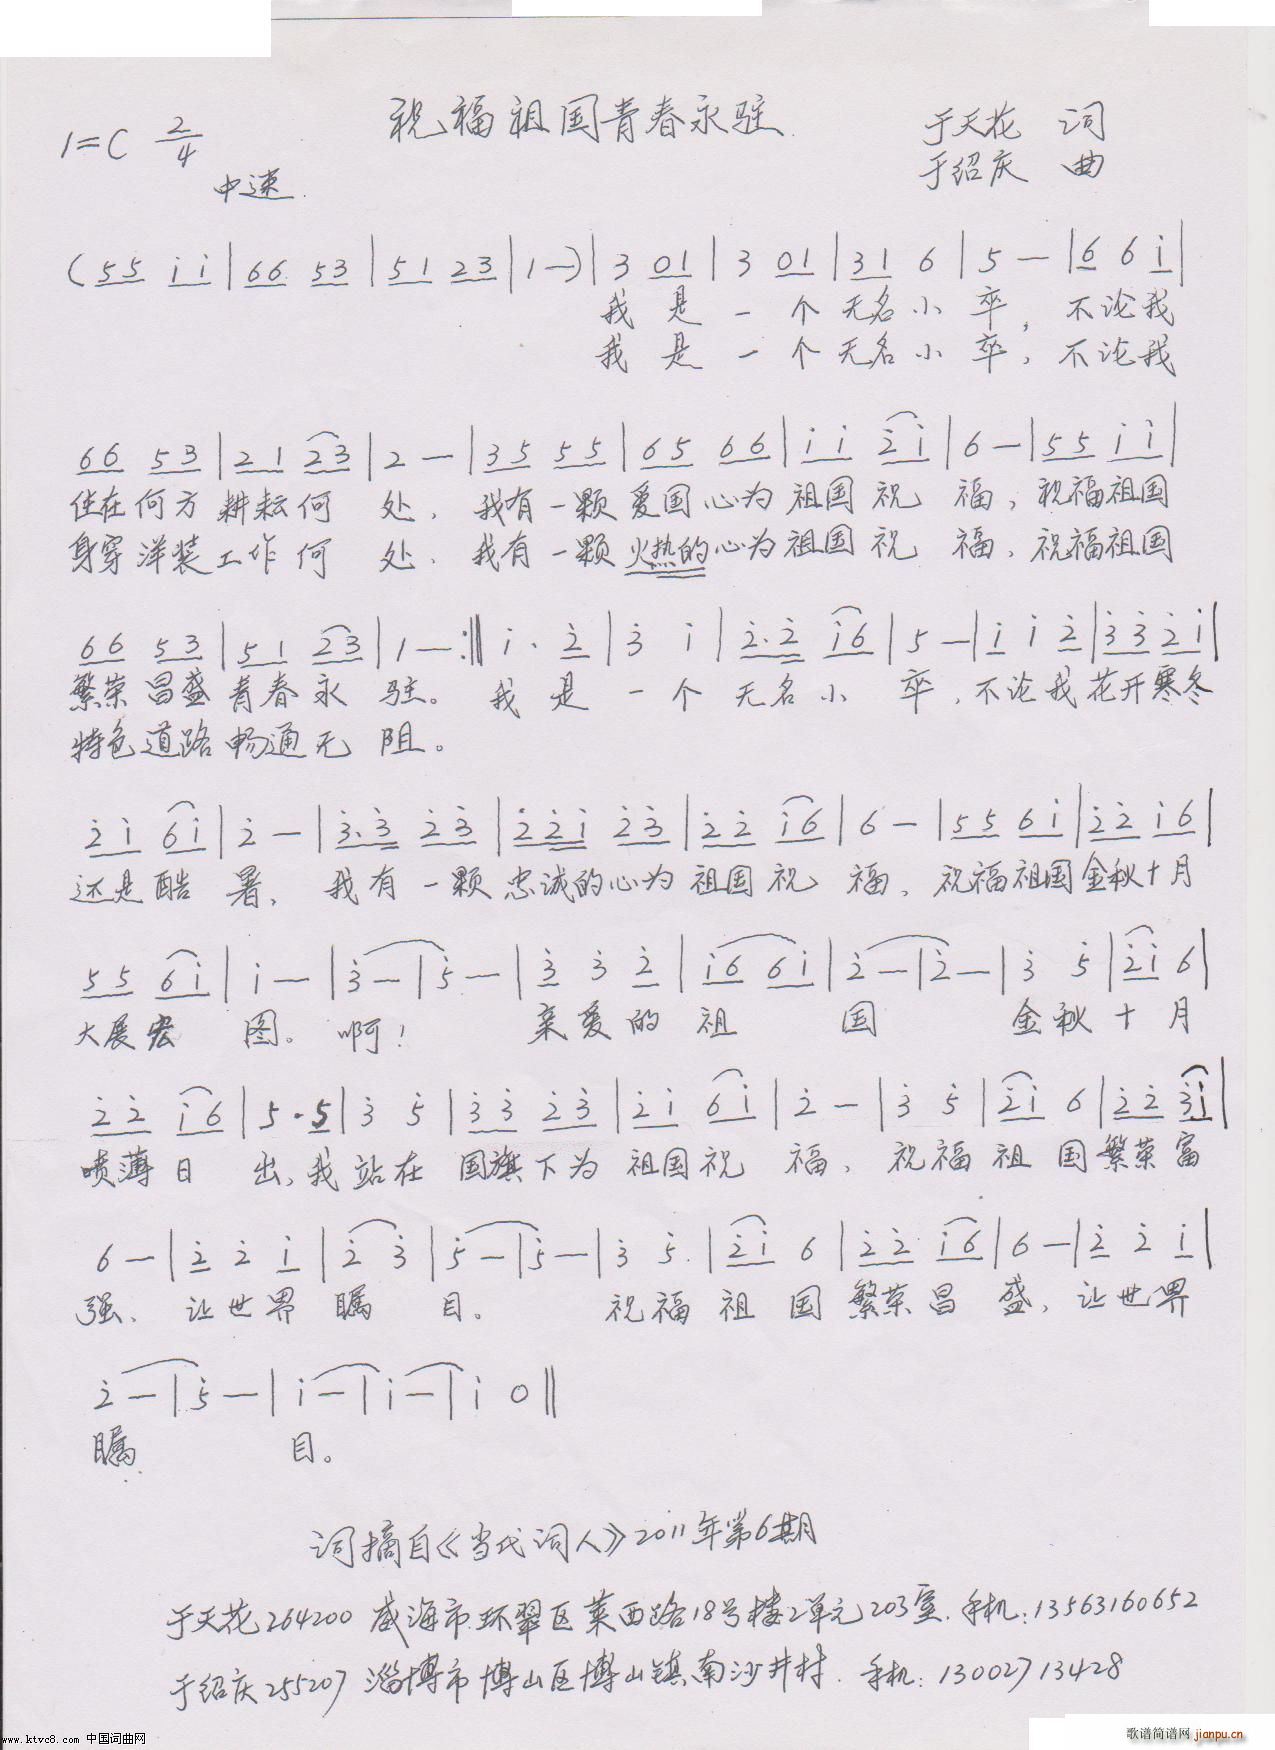 祝福祖国青春永驻
1=C 2/4
中速
于天花 词
于绍庆 曲
( 5 5 i i | 6 6 5 3 | 5 1 2 3 | 1 — ) | 3 0 1 | 3 0 1 | 3 1 6 | 5 — | 6 6 i |
我 是 一 个 无名 小 卒, 不论我
我 是 一 个 无名 小 卒, 不论我
6 6 5 3 | 2 1 2 3 | 2 — | 3 5 5 5 | 6 5 6 6 | i i 2 i | 6 — | 5 5 i i |
住在何方 耕耘何 处, 我有一颗 爱国心为 祖国祝 福, 祝福祖国
身穿洋装 工作何 处, 我有一颗 火热的心为 祖国祝 福, 祝福祖国
6 6 5 3 | 5 1 2 3 | 1 — :‖ i · 2 | 3 i | 2 · 2 i 6 | 5 — | i i 2 | 3 3 2 i |
繁荣昌盛 青春永 驻。 我 是 一 个 无名小 卒, 不论我 花开寒冬
特色道路 畅通无 阻。
2 i 6 i | 2 — | 3 · 3 2 3 | 2 2 i 2 3 | 2 2 i 6 | 6 — | 5 5 6 i | 2 2 i 6 |
还是酷 暑, 我有一颗 忠诚的心为 祖国祝 福, 祝福祖国 金秋十月
5 5 6 i | i — | 3 — | 5 — | 3 3 2 | i 6 6 i | 2 — | 2 — | 3 5 | 2 i 6 |
大展宏 图。 啊! 亲爱的 祖 国 金秋十月
2 2 i 6 | 5 · 5 | 3 5 | 3 3 2 3 | 2 i 6 i | 2 — | 3 5 | 2 i 6 | 2 2 3 i |
喷薄日 出, 我站在 国旗下为 祖国祝 福, 祝福祖国 繁荣富
6 — | 2 2 i | 2 3 | 5 — | 5 — | 3 5 | 2 i 6 | 2 2 i 6 | 6 — | 2 2 i |
强, 让世界 瞩 目。 祝福祖国 繁荣昌 盛, 让世界
2 — | 5 — | i — | i — | i 0 ‖
瞩 目。
词摘自《当代词人》2011年第6期
于天花264200 威海市环翠区莱西路18号楼2单元203室. 手机:13563160652
于绍庆255207 淄博市博山区博山镇南沙井村. 手机:13002713428
www.ktvc8.com 中国词曲网
歌谱简谱网 jianpu.cn